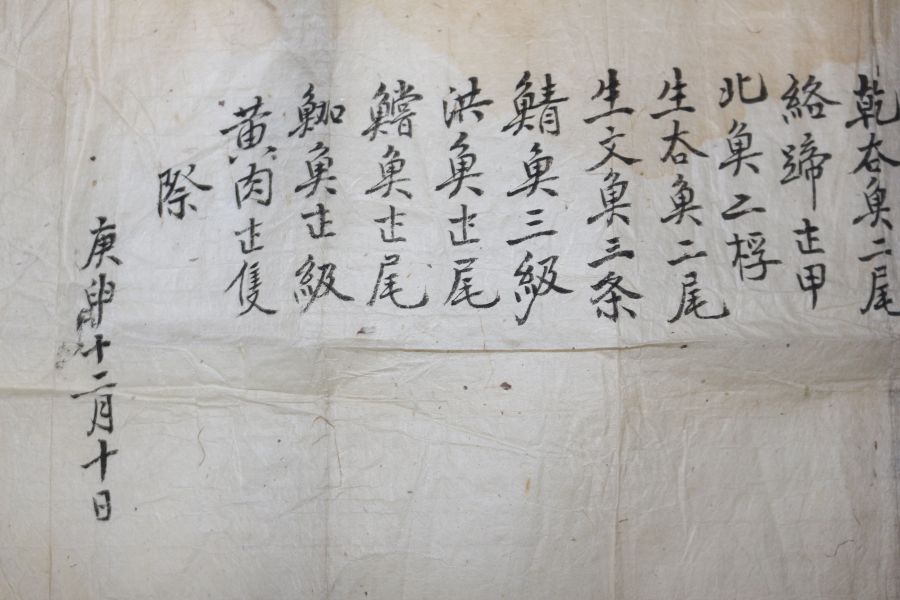 乾夻魚二尾
絡蹄𠀍甲
北魚二桴
生夻魚二尾
生文魚三条
鯖魚三級
洪魚𠀍尾
鱨魚𠀍尾
魚𠀍級
黄肉𠀍隻
際
庚申十二月十日